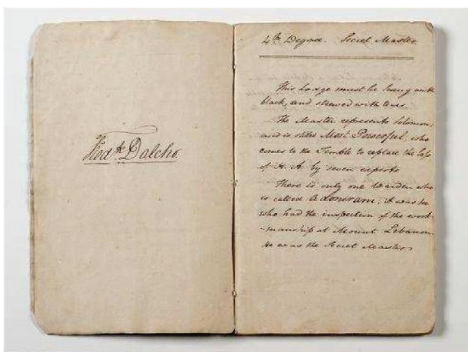 Fred.k Dalcho
4th Degree. Secret Master
This Lodge must be hung with
black, and strewed with tears.
The Master represents Solomon,
and is stiled Most Powerful, who
comes to the Temple to replace the loss
of H. A. by seven experts
There is only one Warden who
is called Adoniram; it was he
who had the inspection of the work
-manship at Mount Lebanon
he was the Secret Master